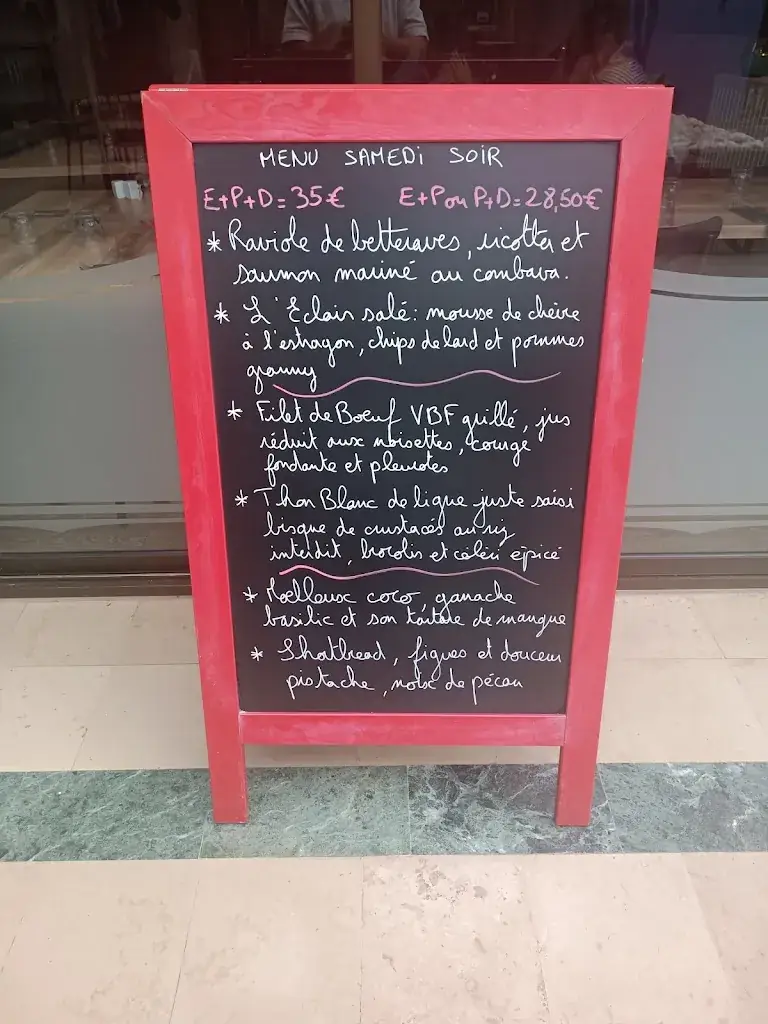 MENU SAMEDI SOIR
E+P+D = 35€ E+P ou P+D = 28,50€
* Raviole de betteraves, ricotta et
saumon mariné au combava.
* L'Eclair salé : mousse de chèvre
à l'estragon, chips de lard et pommes
granny
* Filet de Boeuf VBF grillé, jus
réduit aux noisettes, courge
fondante et pleurotes
* Thon Blanc de ligne juste saisi
bisque de crustacés au riz
interdit, brocolis et céleri épicé
* Moelleux coco, ganache
basilic et son tartare de mangue
* Shortbread, figues et douceur
pistache, noix de pécan